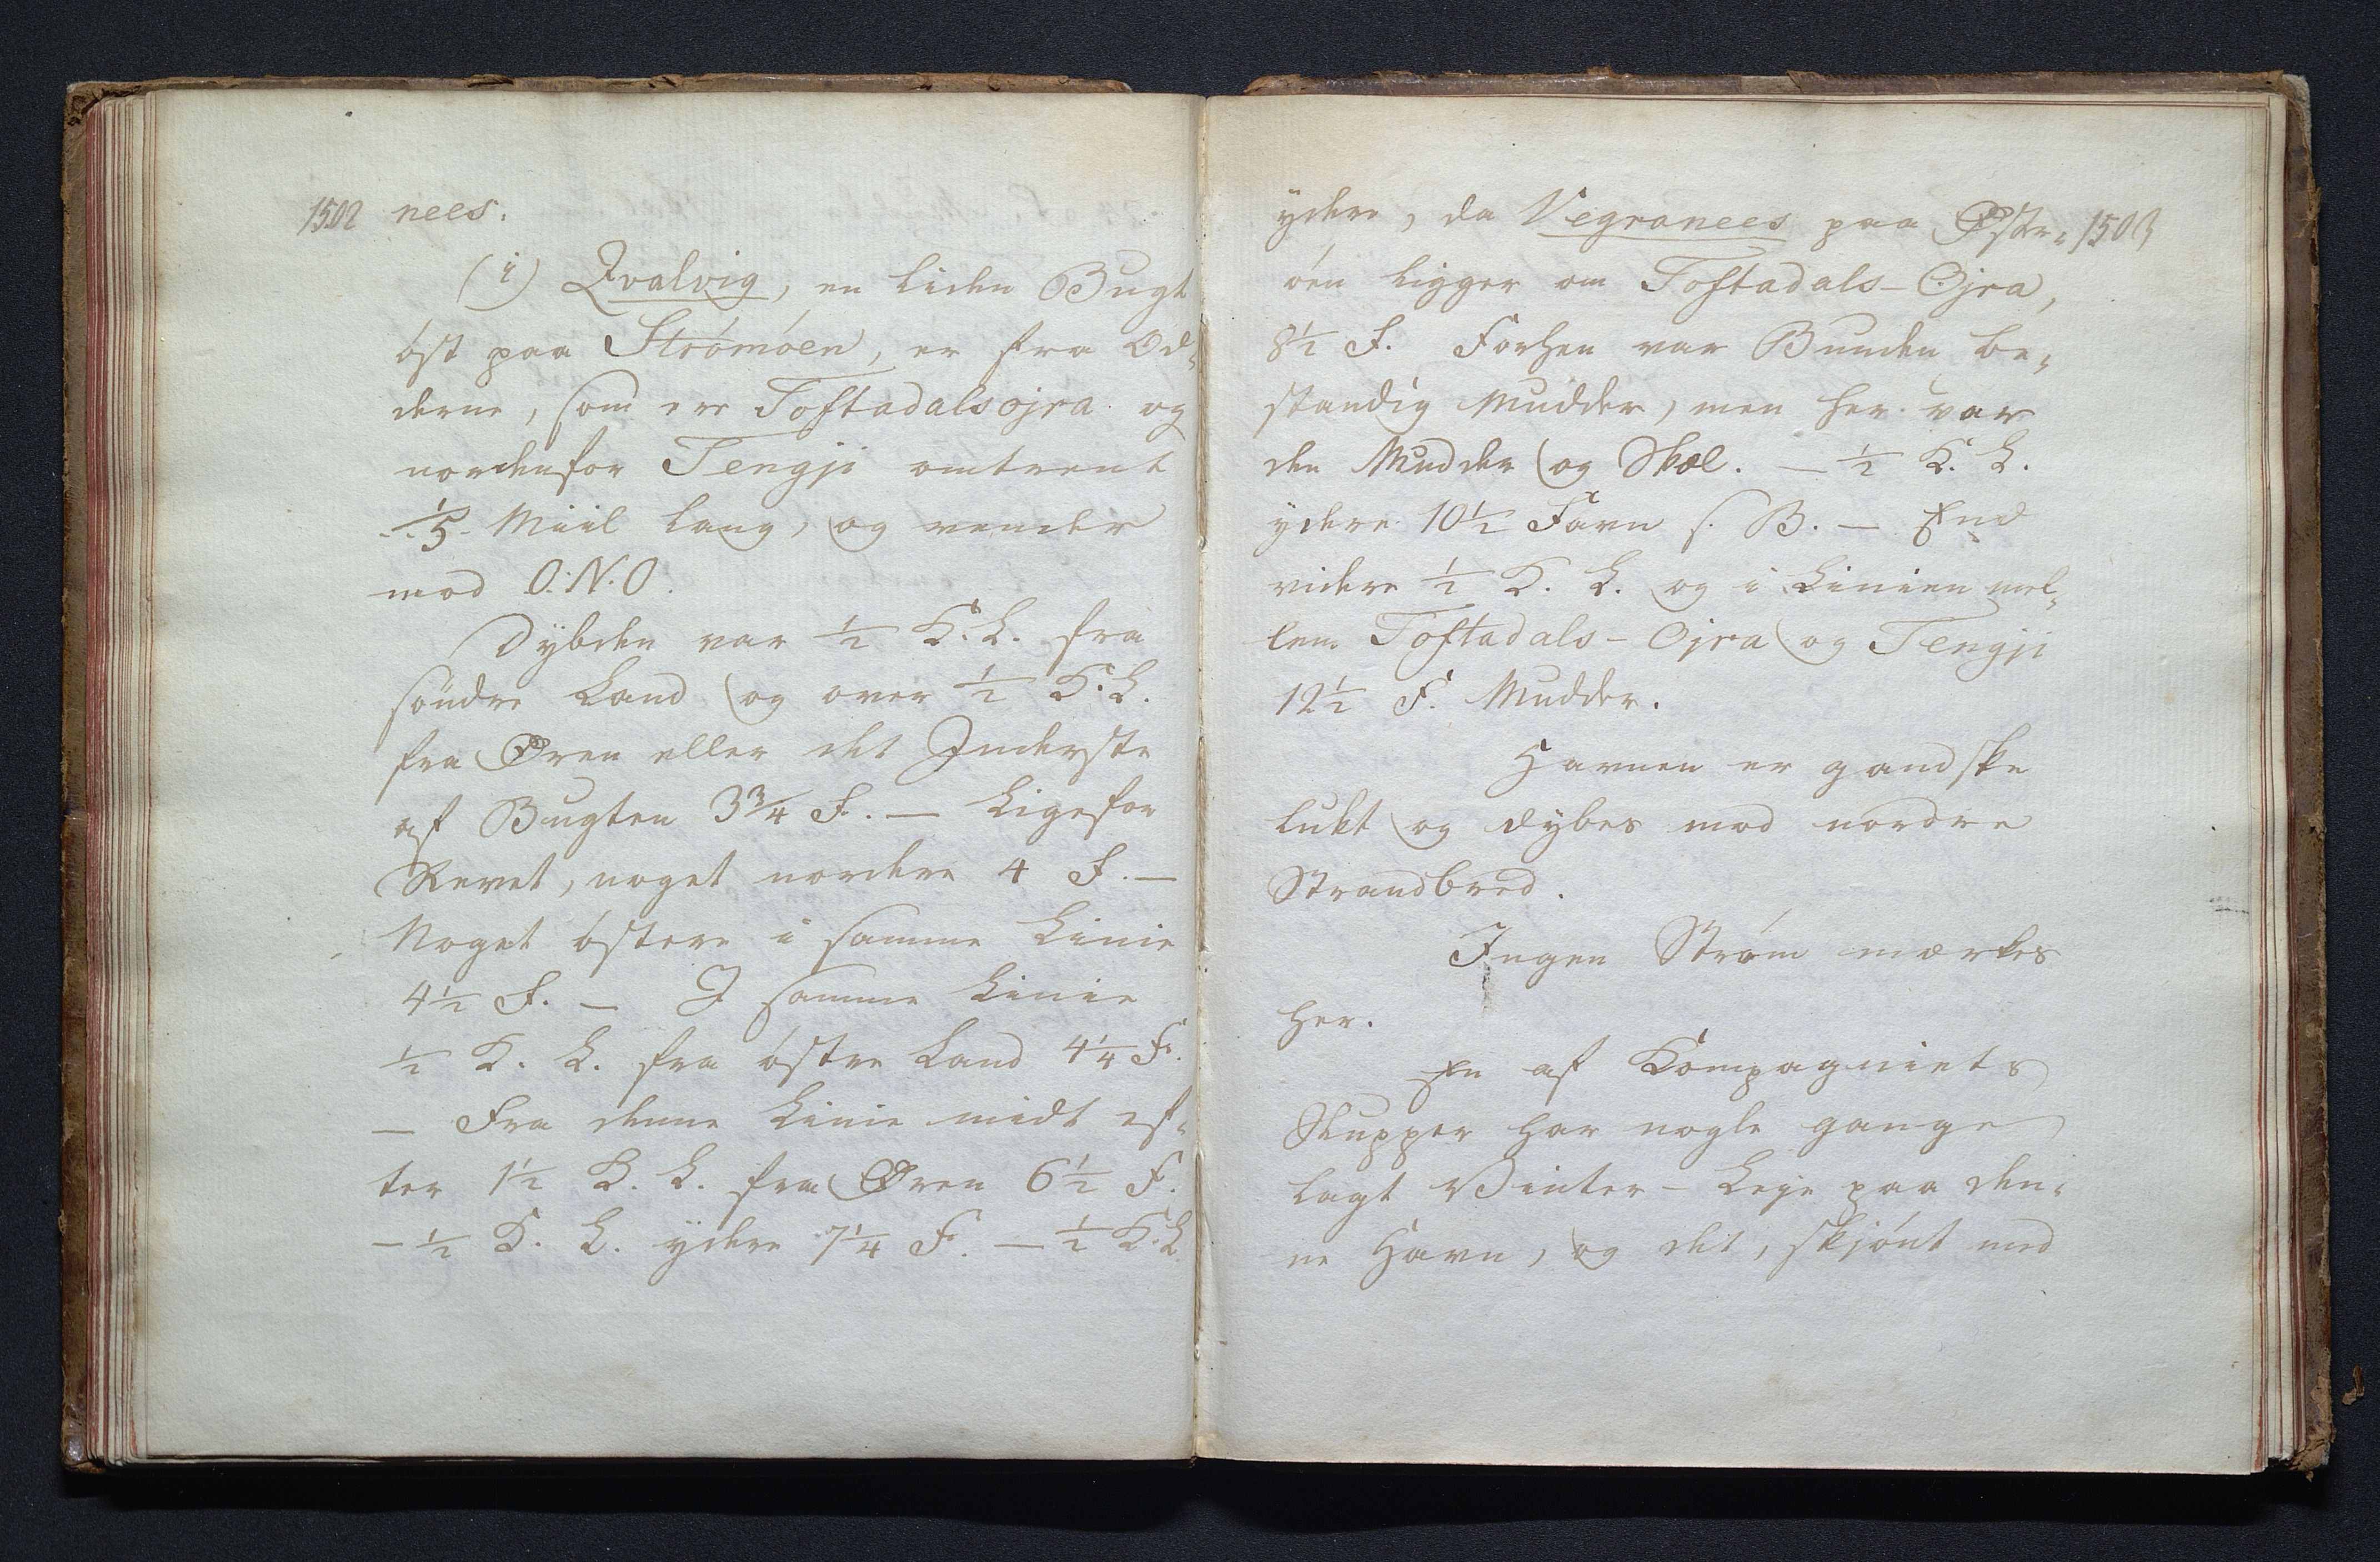 1502 nees.
(i) Qvalvig, en liden Bugt
öst paa Strömöen, er fra Od-
derne, som ere Toftadalsojra og
nordenfor Tengji omtrent
1/5 Miil lang, og vender
mod O.N.O.
Dybden var ½ K.L. fra
söndre Land og over ½ K.L.
fra Øren eller det Inderste
af Bugten 3¾ F. — Ligefor
Revet, noget nordere 4 F. —
Noget östere i samme Linie
4½ F. — I samme Linie
½ K. L. fra östre Land 4¼ F.
— Fra denne Linie midt ef-
ter 1½ K. L. fra Øren 6½ F.
— ½ K. L. ydere 7¼ F. — ½ K.L
ydere, da Vegranees paa Østr- 1503
öen ligger om Toftadals-Ojra,
8½ F. Forhen var Bunden be-
standig Mudder, men her var
den Mudder og Skæl. — ½ K. L.
ydere 10½ Favn s. B. — End
videre ½ K. L. og i Linien mel-
lem Toftadals-Ojra og Tengji
12½ F. Mudder.
Havnen er gandske
lukt og dybes mod nordre
Strandbred.
Ingen Ström mærkes
her.
En af Kompagniets
Slupper har nogle gange
lagt Vinter-Leje paa den-
ne Havn, og det, skjönt med